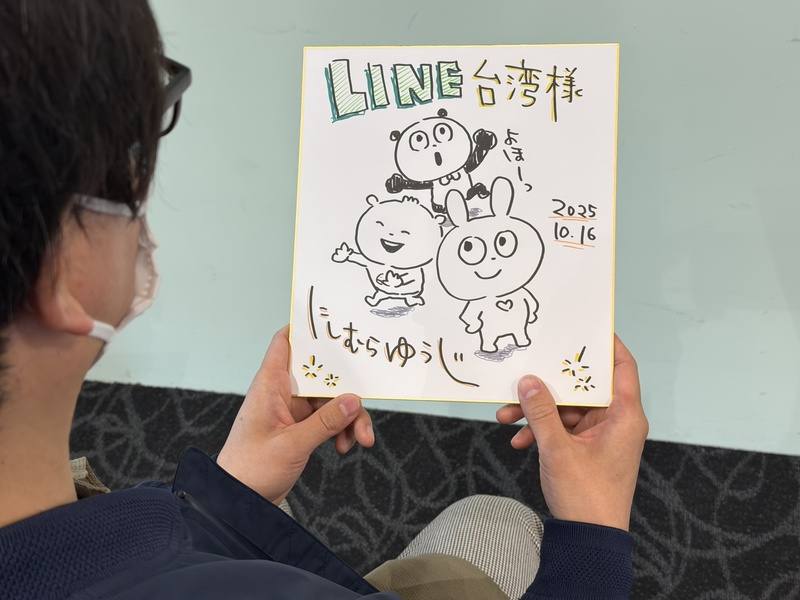 LINE 台湾様
よほーっ
2025
10.16
にしむらゆうじ